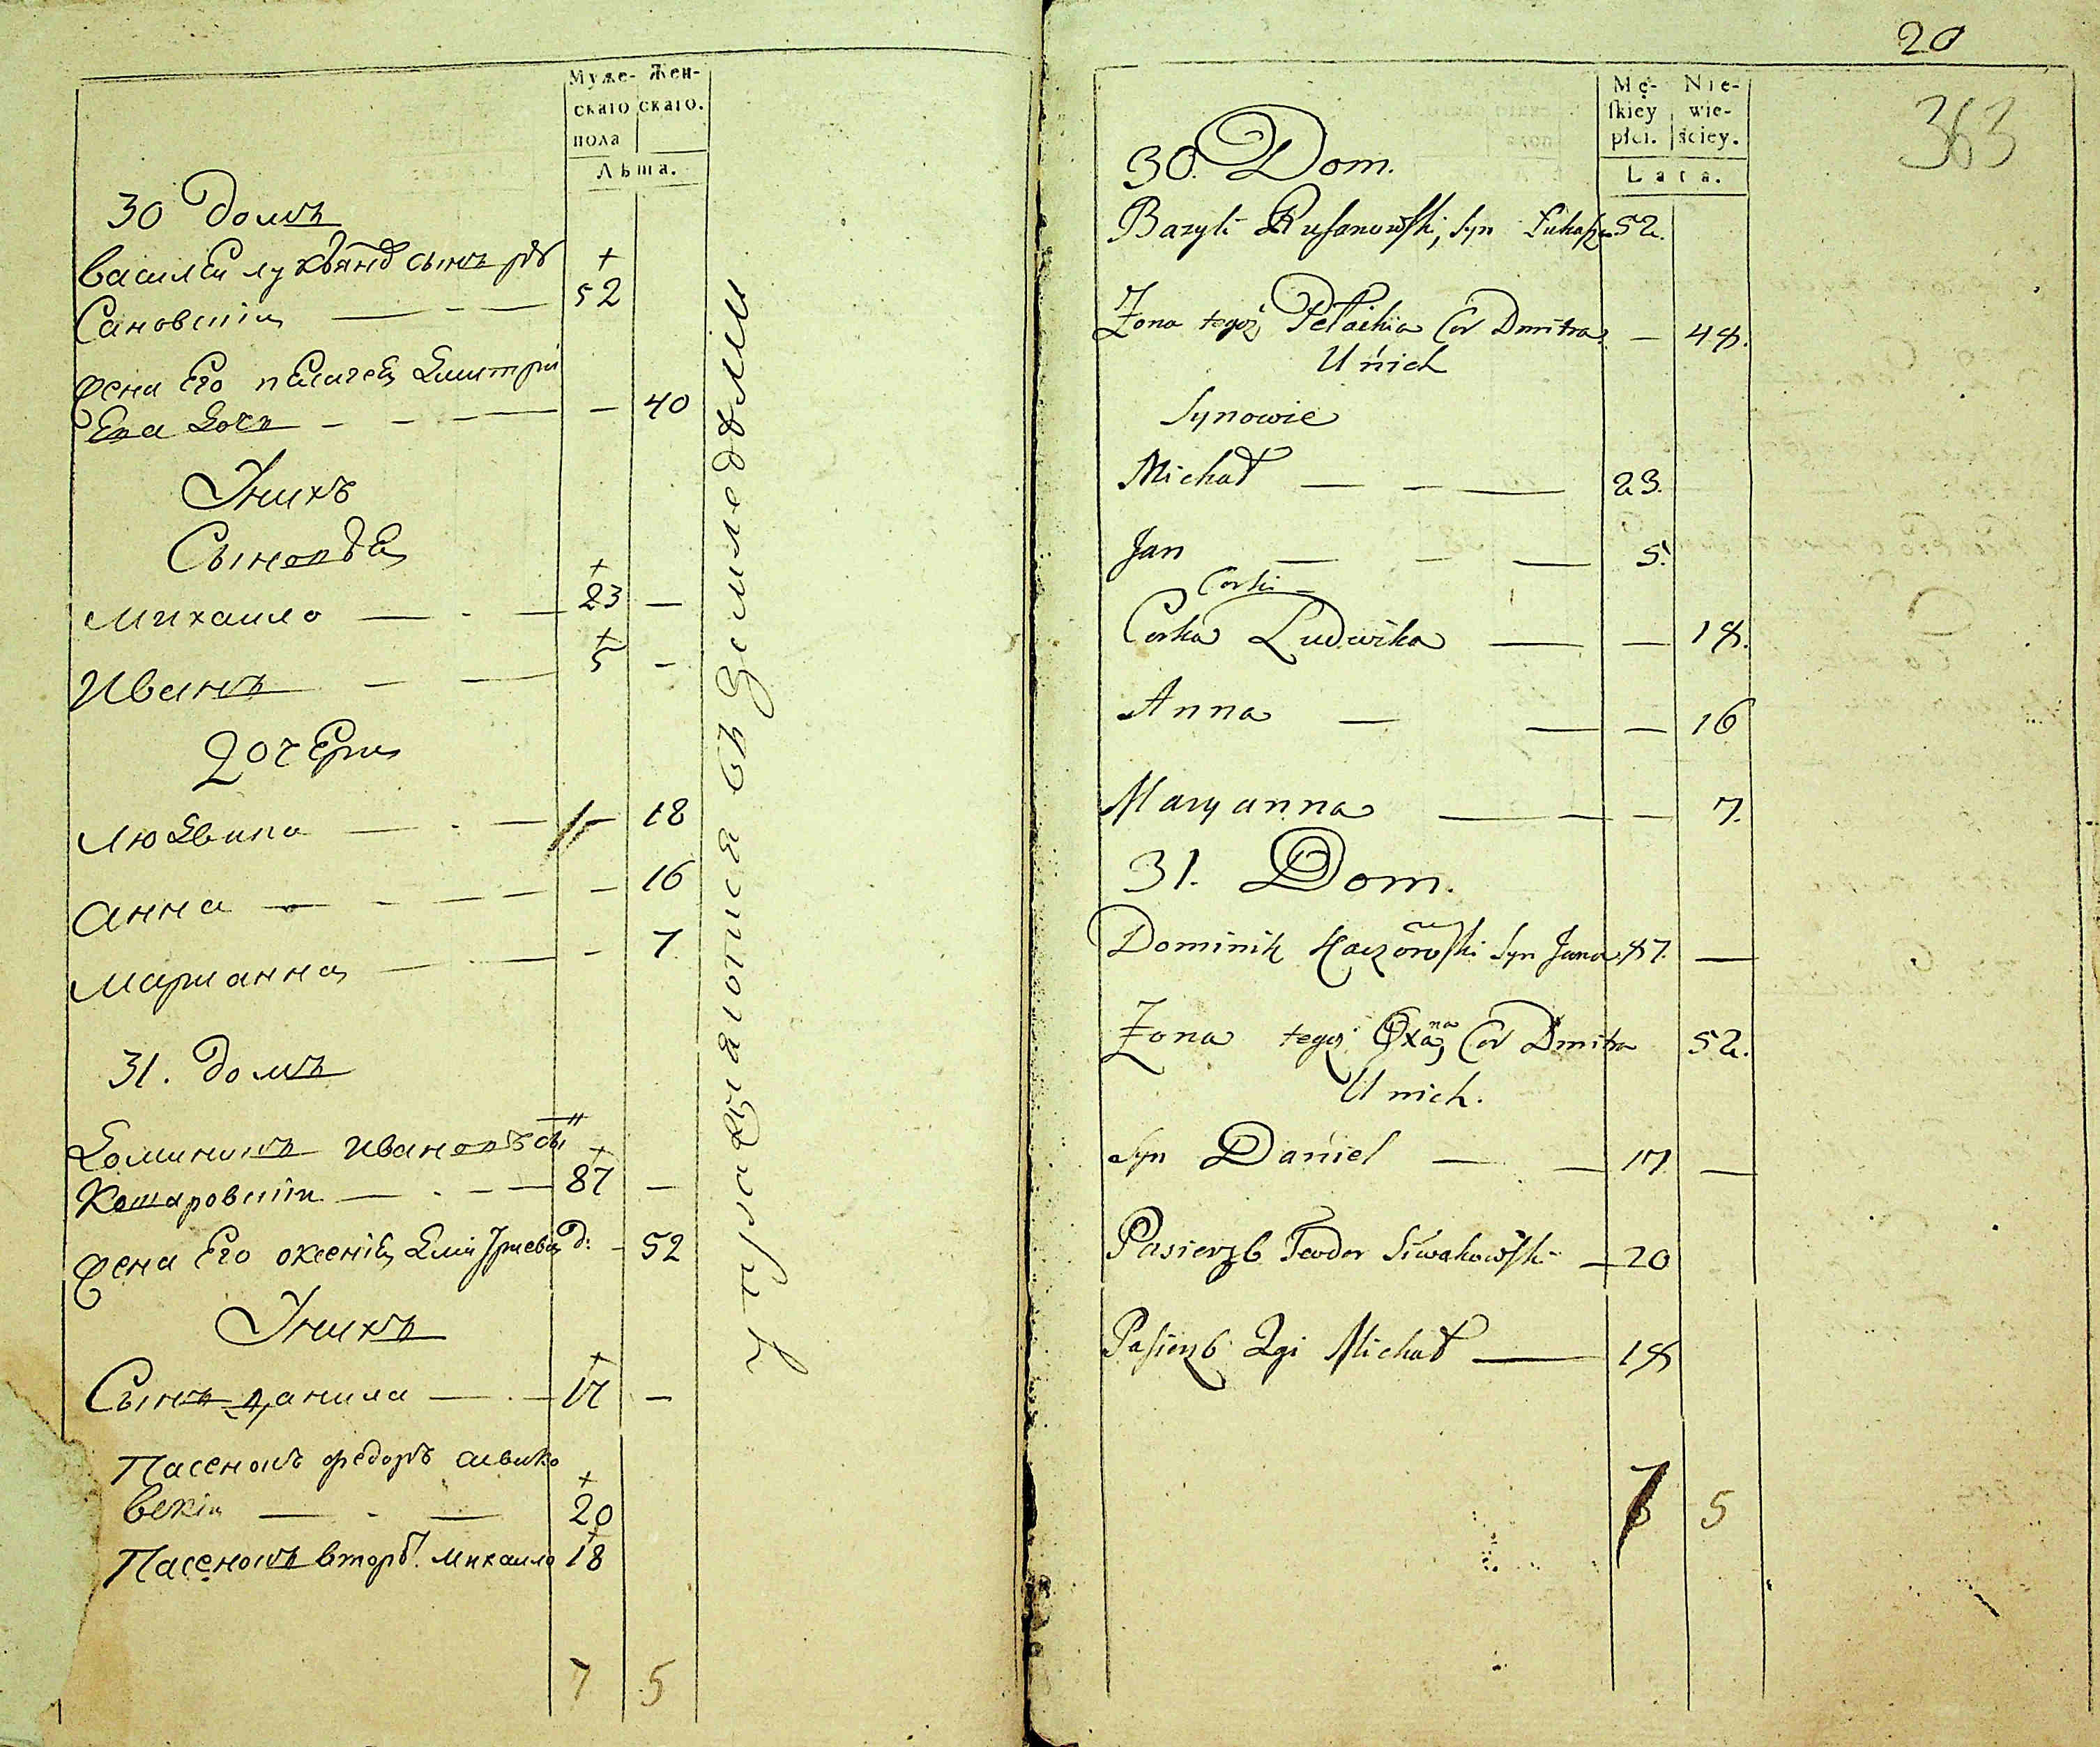 Муже- Жен-
скаго скаго.
пола
Лѣта.
30 Домъ
Василей лукьяновъ сынъ ру +
сановскій — - — 52
Жена Его пелагея Дмитрі
Ева дочь - - - — — 40
У нихъ
Сыновья
+
Михаило — - — 23 —
+
Иванъ — — 5 -
Дочери
Людвика — - — — 18
Анна — - — — — 16
Марианна — - — - 7
31. Домъ
Доминикъ Ивановъ сы́нъ +
Качаровскій — . — — 87 —
Жена Его оксенія Дмитриева д: - 52
У нихъ
+
Сынъ Данила — . — 17 —
Пасенокъ Федоръ сивако +
вскій — - — 20
+
Пасенокъ вторы́. Михаило 18
7 5
упражняются въ земледѣліи
20
363
Mę- Nie-
skiey wie-
płci. ściey.
Lata.
30. Dom.
Bazyli Rusanowski, Syn Łukasza 52.
Żona tegoż Pełachia Cor Dmitra. — 48.
U nich
Synowie
Michał — — — 23.
Jan — - — 5.
Corki —
Corka Ludwika — — 18.
Anna — — — 16
Maryanna — — — 7.
31. Dom.
Dominik Kaczorowski Syn Jana 87. —
Żona tegoż Oxana, Cor Dmitra 52.
U nich.
Syn Daniel — — 17 —
Pasierzb Teodor Siwakowski — 20
Pasierzb 2gi Michał — 18
5